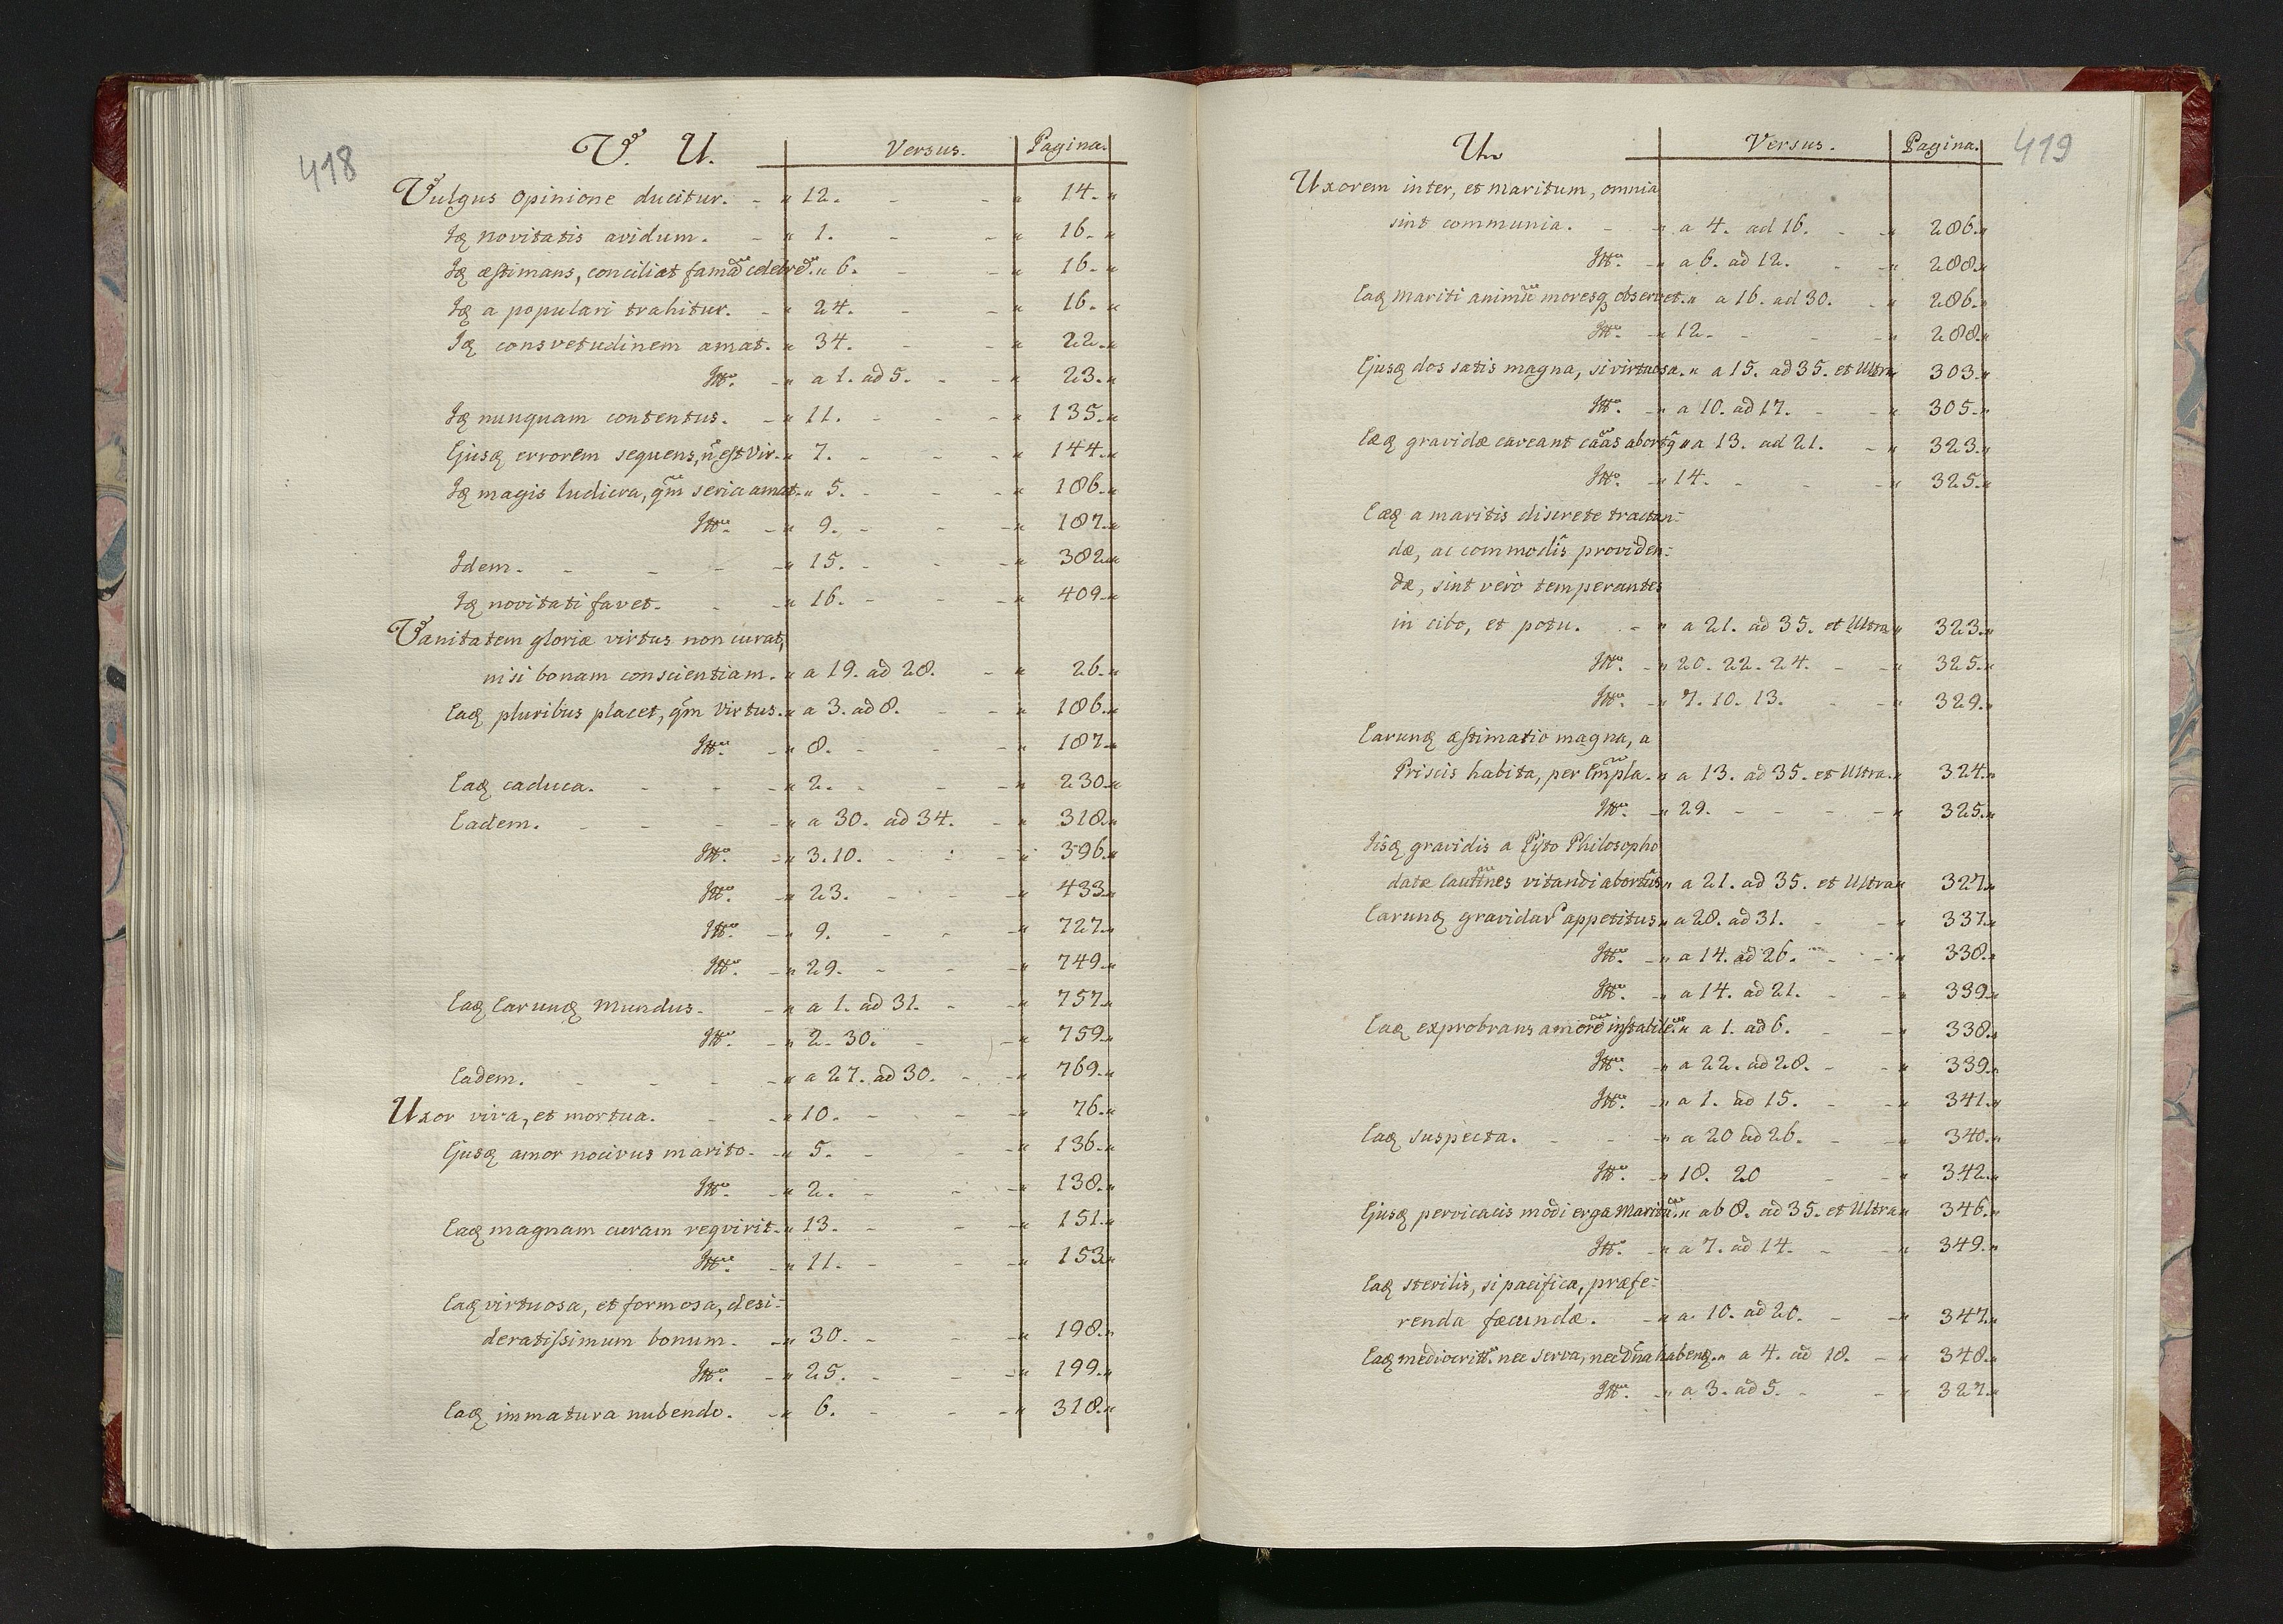 418
V. U. Versus. Pagina.
Vulgus opinione ducitur. - „ 12. - - „ 14. „
Iq novitatis avidum. - „ 1. - - „ 16. „
Iq æstimans, conciliat famã celebrẽ. „ 6. - - „ 16. „
Iq a populari trahitur. - „ 24. - - „ 16. „
Iq consvetudinem amat. „ 34. - - „ 22. „
Itt. - „ a 1. ad 5. - - „ 23. „
Iq nunquam contentus. - „ 11. - - - „ 135. „
Ejusq errorem sequens, ñ est vir. „ 7. - - - „ 144. „
Iq magis ludicra, qm seria amat. „ 5. - - - „ 186. „
Itt. - „ 9. - - - „ 187. „
Idem. - - - - „ 15. - - - „ 382. „
Iq novitati favet. - - „ 16. - - - „ 409. „
Vanitatem gloriæ virtus non curat,
nisi bonam conscientiam. „ a 19. ad 28. - „ 26. „
Eaq pluribus placet, qm virtus. „ a 3. ad 8. - - „ 186. „
Itt. - „ 8. - - - „ 187. „
Eaq caduca. - - - „ 2. - - - „ 230. „
Eadem. - - - - „ a 30. ad 34. - „ 318. „
Itt. - „ 3. 10. - - - „ 396. „
Itt. - „ 23. - - - „ 433. „
Itt. - „ 9. - - - „ 727. „
Itt. - „ 29. - - - „ 749. „
Eaq Earunq Mundus. - „ a 1. ad 31. - - „ 757. „
Itt. - „ 2. 30. - - „ 759. „
Eadem. - - - - „ a 27. ad 30. - - „ 769. „
Uxor viva, et mortua. - - „ 10. - - - „ 76. „
Ejusq amor nocivus marito. - „ 5. - - - „ 136. „
Itt. - „ 2. - - - „ 138. „
Eaq magnam curam reqvirit. „ 13. - - - „ 151. „
Itt. - „ 11. - - - „ 153. „
Eaq virtuosa, et formosa, desi=
deratissimum bonum. - „ 30. - - - „ 198. „
Itt. - „ 25. - - - „ 199. „
Eaq immatura nubendo. - „ 6. - - - „ 318. „
419
U. Versus. Pagina.
Uxorem inter, et maritum, omnia
sint communia. - - „ a 4. ad 16. - - „ 286. „
Itt. - „ a 6. ad 12. - - „ 288. „
Eaq mariti animũ moresq observet. „ a 16. ad 30. - „ 286. „
Itt. - „ 12. - - - „ 288. „
Ejusq dos satis magna, si virtuosa. „ a 15. ad 35. et Ultra „ 303. „
Itt. - „ a 10. ad 17. - - „ 305. „
Eæq gravidæ caveant caas abortq „ a 13. ad 21. - „ 323. „
Itt. - „ 14. - - - „ 325. „
Eæq a maritis discrete tractan=
dæ, ac commodis providen=
dæ, sint verò temperantes
in cibo, et potu. - „ a 21. ad 35. et Ultra „ 323. „
Itt. - „ 20. 22. 24. - - „ 325. „
Itt. - „ 7. 10. 13. - - „ 329. „
Earunq æstimatio magna, a
Priscis habita, per Exmpla. „ a 13. ad 35. et Ultra. „ 324. „
Itt. - „ 29. - - - - „ 325. „
Iisq gravidis a Pijto Philosopho
datæ cautines vitandi abortus „ a 21. ad 35. et Ultra „ 327. „
Earunq gravidar appetitus „ a 28. ad 31. - - „ 337. „
Itt. - „ a 14. ad 26. - - „ 338. „
Itt. - „ a 14. ad 21. - - „ 339. „
Eaq exprobrans amorẽ instabilẽ. „ a 1. ad 6. - - „ 338. „
Itt. - „ a 22. ad 28. - - „ 339. „
Itt. - „ a 1. ad 15. - - „ 341. „
Eaq suspecta. - - - „ a 20 ad 26. - - „ 340. „
Itt. - „ 18. 20 - - „ 342. „
Ejusq pervicacis modi erga Maritũ. „ ab 8. ad 35. et Ultra „ 346. „
Itt. - „ a 7. ad 14. - - „ 349. „
Eaq sterilis, si pacifica, præfe=
renda fæcundæ. - „ a. 10. ad 20. - - „ 347. „
Eaq mediocritt. nec serva, nec dña habenq. „ a 4. ad 18. - „ 348. „
Itt. - „ a 3. ad 5. - - „ 327. „